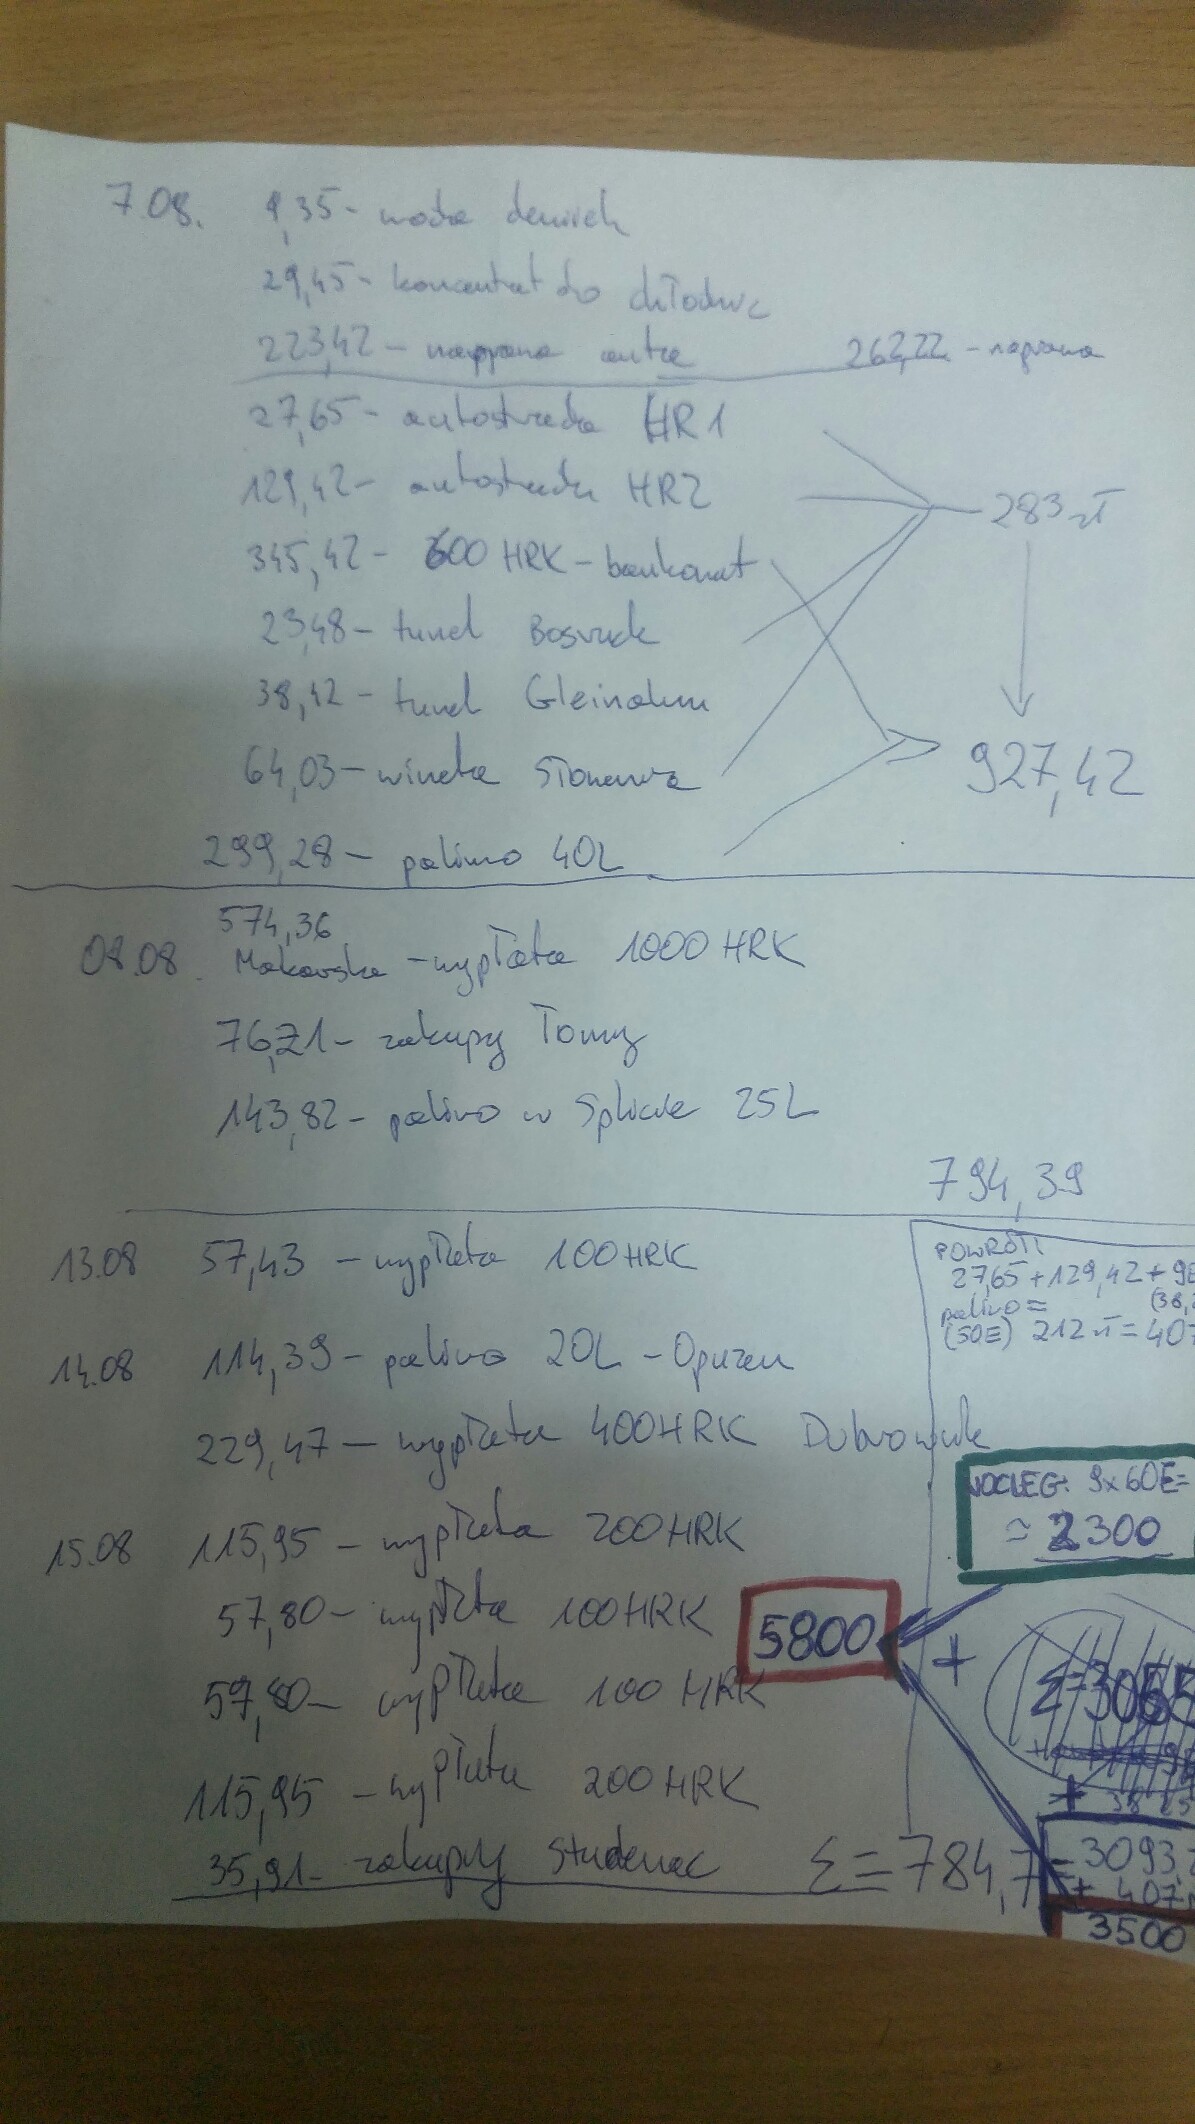 7.08. 9,35- woda demink
29,45- koncentrat do chłodnic
223,42 - naprawa auta 262,22 - naprawa
27,65- autostrada HR1
129,42- autostrada HR2
283 zł
345,42- 600 HRK - bankomat
23,48- tunel Bosruck
38,42- tunel Gleinalm
64,03- winieta Słowenia
927,42
299,28- paliwo 40L
574,36
08.08. Makarska - wypłata 1000 HRK
76,21- zakupy Tomy
143,82- paliwo w Splicie 25L
794,39
13.08 57,43 - wypłata 100HRK
POWRÓT
27,65+129,42+
paliwo = (38,
(50E) 212 zł = 407
14.08 114,39- paliwo 20L - Opuzen
229,47 - wypłata 400HRK Dubrownik
NOCLEG: 9x60E=
≈ 2300
15.08 115,95 - wypłata 200HRK
57,80- wypłata 100HRK
5800
+
Σ=3065
57,80- wypłata 100 HRK
115,95 - wypłata 200HRK
+ 38 25
35,91- zakupy Studenac Σ=784,7
3093,
+ 407
3500